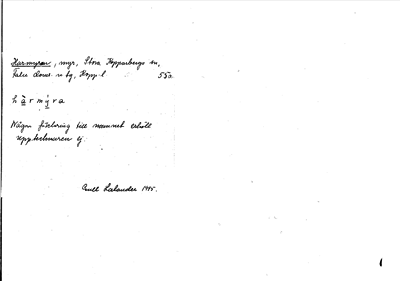 Harmyran, myr, Stora Kopparbergs sn,
Falu doms. o tg, Kopp. l 55a
h à r m ý r a
Någon förklaring till namnet erhöll
upptecknaren ej.
Emil Lalander 1915.